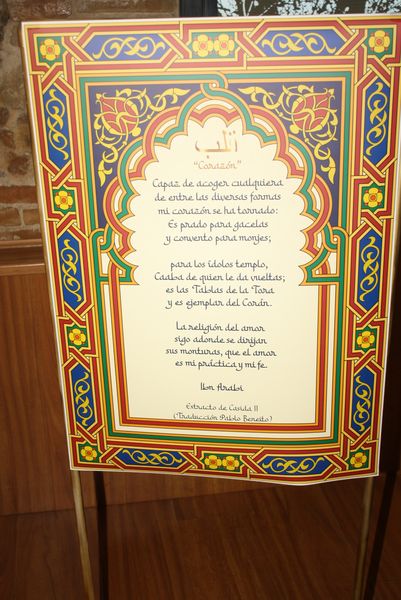 قلب
"Corazón"
Capaz de acoger cualquiera
de entre las diversas formas
mi corazón se ha tornado:
Es prado para gacelas
y convento para monjes;
para los ídolos templo,
Caaba de quien le da vueltas;
es las Tablas de la Tora
y es ejemplar del Corán.
La religión del amor
sigo adonde se dirijan
sus monturas, que el amor
es mi práctica y mi fe.
Ibn Arabi
Extracto de Casida 11
(Traducción Pablo Beneito)